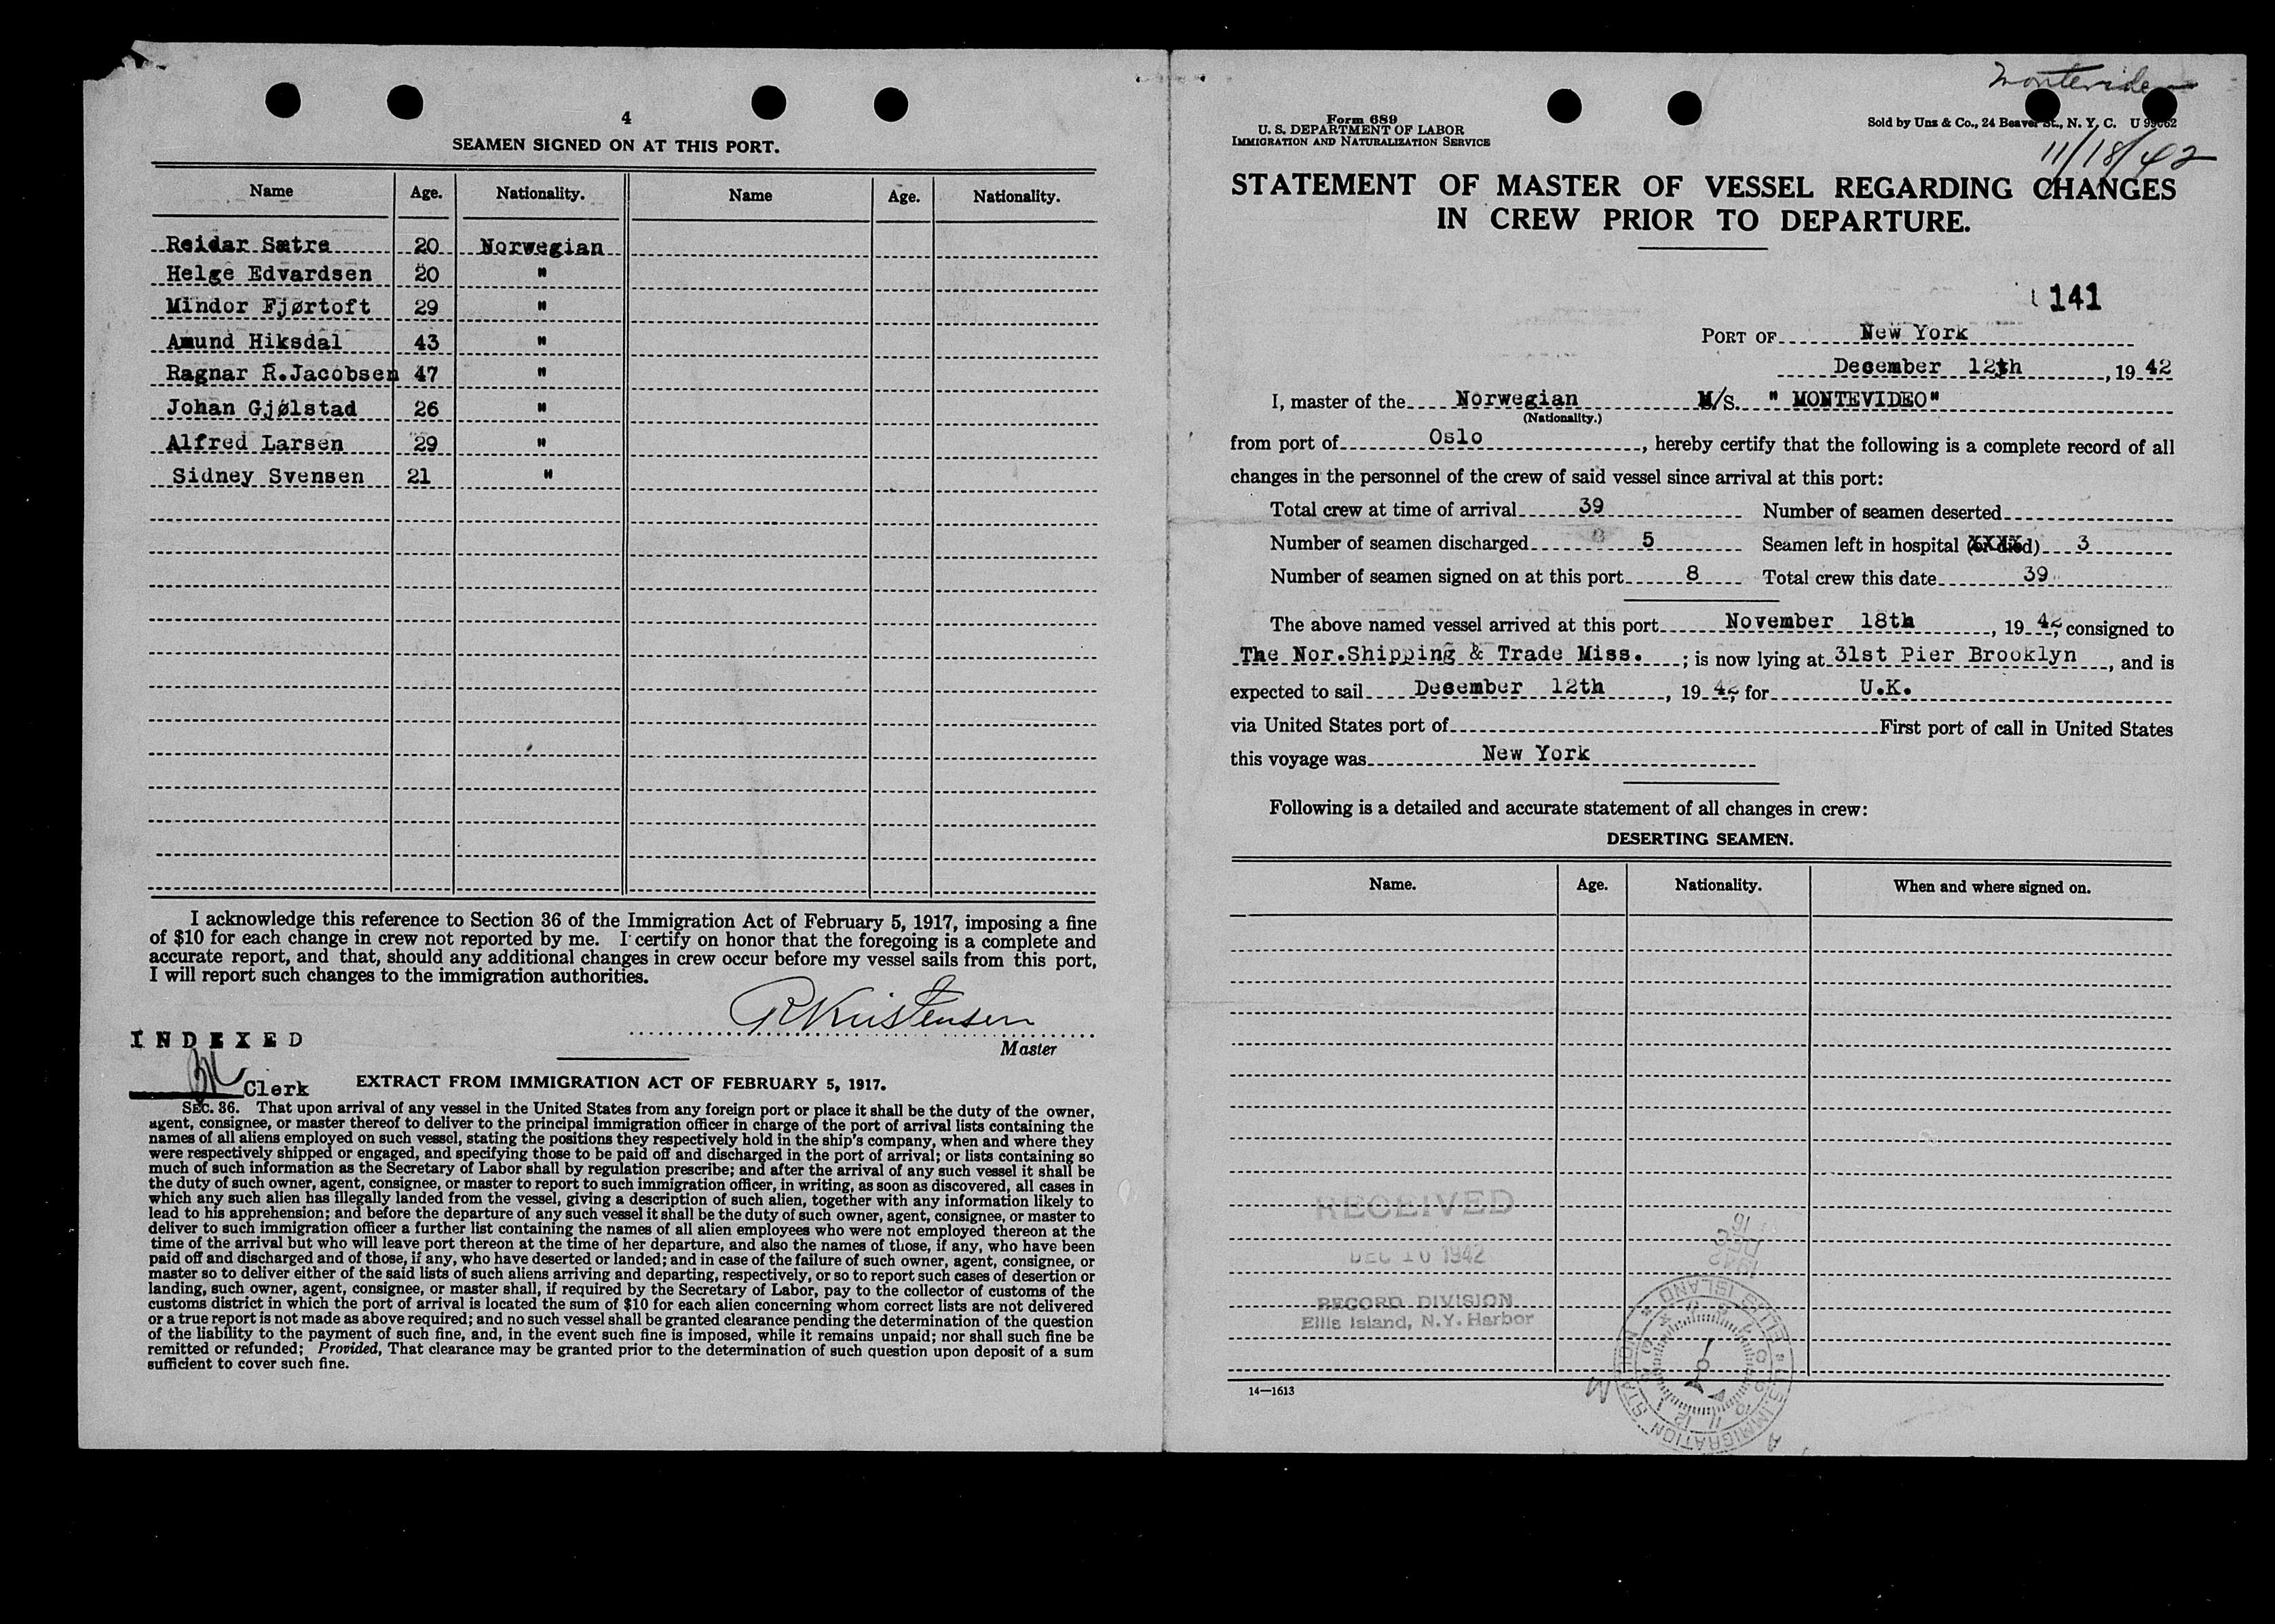 4
SEAMEN SIGNED ON AT THIS PORT.
Name Age. Nationality. Name Age. Nationality.
Reidar Sætre 20 Norwegian
Helge Edvardsen 20 "
Mindor Fjørtoft 29 "
Amund Hiksdal 43 "
Ragnar R.Jacobsen 47 "
Johan Gjølstad 26 "
Alfred Larsen 29 "
Sidney Svensen 21 "
I acknowledge this reference to Section 36 of the Immigration Act of February 5, 1917, imposing a fine
of $10 for each change in crew not reported by me. I certify on honor that the foregoing is a complete and
accurate report, and that, should any additional changes in crew occur before my vessel sails from this port,
I will report such changes to the immigration authorities.
R Kristensen
Master
INDEXED
Clerk
EXTRACT FROM IMMIGRATION ACT OF FEBRUARY 5, 1917.
SEC. 36. That upon arrival of any vessel in the United States from any foreign port or place it shall be the duty of the owner,
agent, consignee, or master thereof to deliver to the principal immigration officer in charge of the port of arrival lists containing the
names of all aliens employed on such vessel, stating the positions they respectively hold in the ship's company, when and where they
were respectively shipped or engaged, and specifying those to be paid off and discharged in the port of arrival; or lists containing so
much of such information as the Secretary of Labor shall by regulation prescribe; and after the arrival of any such vessel it shall be
the duty of such owner, agent, consignee, or master to report to such immigration officer, in writing, as soon as discovered, all cases in
which any such alien has illegally landed from the vessel, giving a description of such alien, together with any information likely to
lead to his apprehension; and before the departure of any such vessel it shall be the duty of such owner, agent, consignee, or master to
deliver to such immigration officer a further list containing the names of all alien employees who were not employed thereon at the
time of the arrival but who will leave port thereon at the time of her departure, and also the names of those, if any, who have been
paid off and discharged and of those, if any, who have deserted or landed; and in case of the failure of such owner, agent, consignee, or
master so to deliver either of the said lists of such aliens arriving and departing, respectively, or so to report such cases of desertion or
landing, such owner, agent, consignee, or master shall, if required by the Secretary of Labor, pay to the collector of customs of the
customs district in which the port of arrival is located the sum of $10 for each alien concerning whom correct lists are not delivered
or a true report is not made as above required; and no such vessel shall be granted clearance pending the determination of the question
of the liability to the payment of such fine, and, in the event such fine is imposed, while it remains unpaid; nor shall such fine be
remitted or refunded; Provided, That clearance may be granted prior to the determination of such question upon deposit of a sum
sufficient to cover such fine.
Montevideo
Form 689
U. S. DEPARTMENT OF LABOR
IMMIGRATION AND NATURALIZATION SERVICE
Sold by Unz & Co., 24 Beaver St., N. Y. C. U 99062
11/18/42
STATEMENT OF MASTER OF VESSEL REGARDING CHANGES
IN CREW PRIOR TO DEPARTURE.
141
PORT OF New York
December 12th, 19 42
I, master of the Norwegian M/S. " MONTEVIDEO"
(Nationality.)
from port of Oslo, hereby certify that the following is a complete record of all
changes in the personnel of the crew of said vessel since arrival at this port:
Total crew at time of arrival 39 Number of seamen deserted
Number of seamen discharged 5 Seamen left in hospital (or died) 3
Number of seamen signed on at this port 8 Total crew this date 39
The above named vessel arrived at this port November 18th, 19 42, consigned to
The Nor.Shipping & Trade Miss. ; is now lying at 31st Pier Brooklyn, and is
expected to sail December 12th, 19 42, for U.K.
via United States port of First port of call in United States
this voyage was New York
Following is a detailed and accurate statement of all changes in crew:
DESERTING SEAMEN.
Name. Age. Nationality. When and where signed on.
RECEIVED
DEC 16 1942
RECORD DIVISION
Ellis Island, N.Y. Harbor
16
DEC
1942
U.S. IMMIGRATION STATION * ELLIS ISLAND *
14—1613